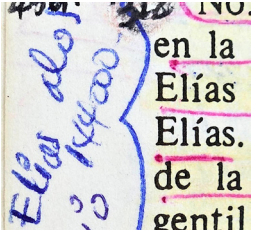 NO.
en la
Elías
Elías.
de la
gentil
Elías alos
144000